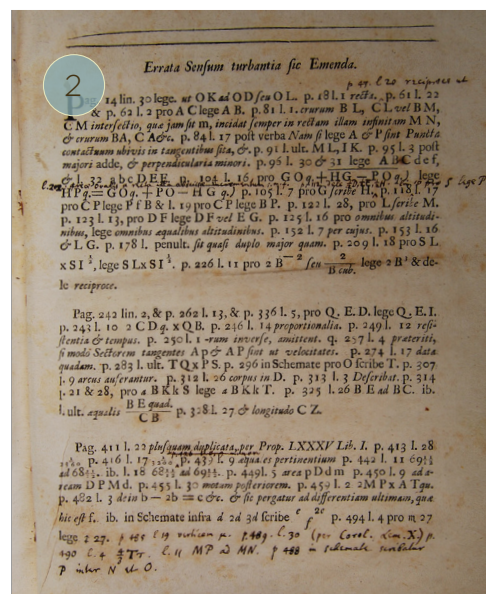 2
Errata Sensum turbantia sic Emenda.
p. 49. l. 20 reciproce ut
Pag. 14 lin. 30 lege. ut OK ad OD seu OL. p. 18 l. 1 recta. p. 61 l. 22
& p. 62 l. 2 pro AC lege AB. p. 81 l. 1. crurum BL, CL vel BM,
CM intersectio, quæ jam sit m, incidat semper in rectam illam infinitam MN,
& crurum BA, CA &c. p. 84 l. 17 post verba Nam si lege A & P sint Puncta
contactuum ubivis in tangentibus sita, &. p. 91 l. ult. ML, IK. p. 95 l. 3 post
majori adde, & perpendicularia minori. p. 96 l. 30 & 31 lege def,
& l. 32 abc DEF. p. 104 l. 16, pro GOq + HG – POq) lege
HPq – GOq. + PO – HG q.) p. 105 l. 7 pro G scribe H, p. 118 l. 13
pro CP lege PF B & l. 19 pro CP lege BP. p. 122 l. 28, pro L scribe M.
p. 123 l. 13, pro DF lege DF vel EG. p. 125 l. 16 pro omnibus altitudi-
nibus, lege omnibus æqualibus altitudinibus. p. 152 l. 7 per cujus. p. 153 l. 16
& LG. p. 178 l. penult. sit quasi duplo major quam. p. 209 l. 18 pro SL
x SI ½, lege SL x SI ½. p. 226 l. 11 pro 2 B⁻² seu 2/B cub. lege 2 B² & de-
le reciproce.
Pag. 242 lin. 2, & p. 262 l. 13, & p. 336 l. 5, pro Q. E. D. lege Q. E. I.
p. 243 l. 10 2 CDq. x QB. p. 246 l. 14 proportionalia. p. 249 l. 12 resi-
stentia & tempus. p. 250 l. 1 -rum inverse, amittent. q. 257 l. 4 præteriti,
si modo Sectorem tangentes Ap & AP sint ut velocitates. p. 274 l. 17 data
quadam. p. 283 l. ult. TQ x PS. p. 296 in Schemate pro O scribe T. p. 307
l. 9 arcus auferantur. p. 312 l. 26 corpus in D. p. 313 l. 3 Describat. p. 314
l. 21 & 28, pro a BKk S lege a BKk T. p. 325 l. 26 BE ad BC. ib.
l. ult. æqualis BE quad./CB p. 328 l. 27 & longitudo CZ.
Pag. 411 l. 22 plusquam duplicata, per Prop. LXXXV Lib. I. p. 413 l. 28
p. 416 l. 17 p. 439 l. 9 aquæ pertinentium p. 442 l. 11
ad ib. l. 18 ad p. 449 l. 5 area pDdm p. 450 l. 9 ad a-
ream DPMd. p. 455 l. 30 motum posteriorem. p. 459 l. 2 2MP x A Tqu.
p. 482 l. 3 dein b – 2b = c &c. & sic pergatur ad differentiam ultimam, quæ
hic est f. ib. in Schemate infra d 2d 3d scribe e f 2e p. 494 l. 4 pro m 27
lege z 27. p. 485 l. 19 verticem μ. p. 489. l. 30 (per Corol. Lem. X.) p.
490 l. 4 l. 11 MP ad MN. p 488 in schemate scribatur
P inter N et O.